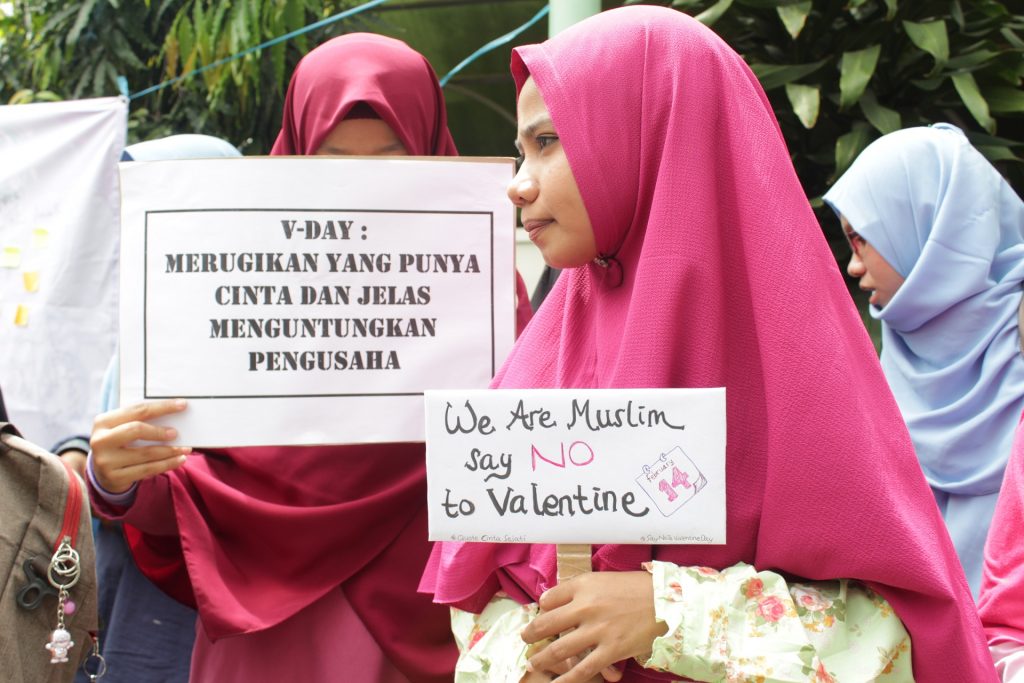 V-DAY :
MERUGIKAN YANG PUNYA
CINTA DAN JELAS
MENGUNTUNGKAN
PENGUSAHA
We Are Muslim
say NO
to Valentine
February
14
Cinta Sejati
#SayNoToValentineDay